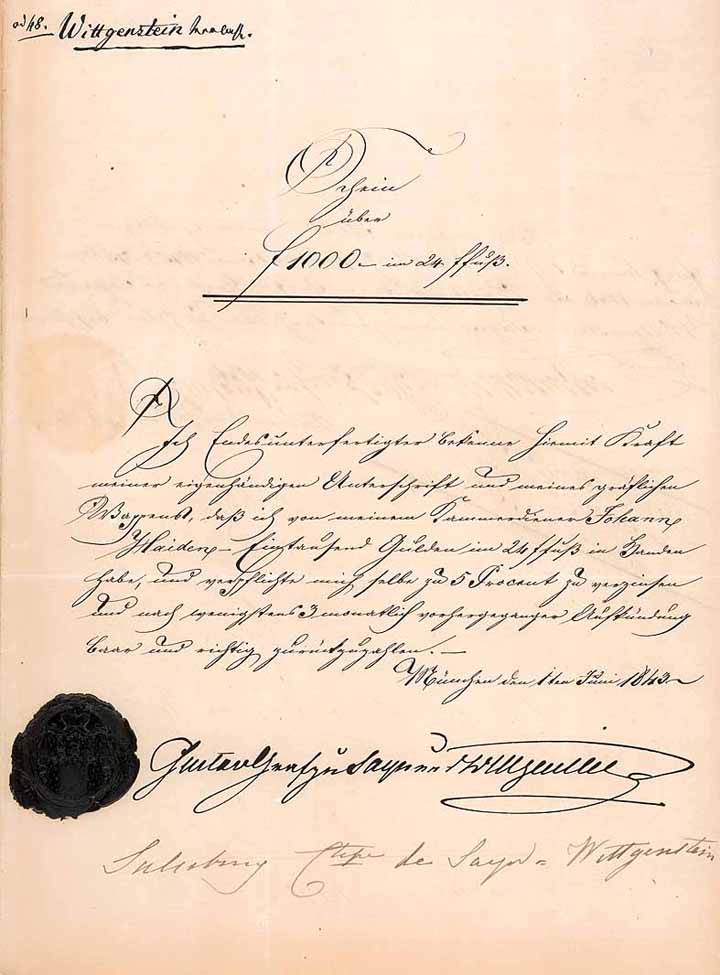 ad 48. Wittgenstein
Schein
über
f 1000.- im 24 fFuß.
Ich Endesunterfertigter bekenne hiemit Kraft
meiner eigenhändigen Unterschrift und meines gräflichen
Wappens, daß ich von meinem Kammerdiener Johann
Haiden - Eintausend Gulden im 24 fFuß in Handen
habe, und verpflichte mich selbe zu 5 Procent zu verzinsen
und nach wenigstens 3 monatlich vorhergeganger Aufkündung
baar und richtig zurückzuzahlen. -
München den 1ten Juni 1843
Gustav Graf zu Sayn und Wittgenstein
de Sayn = Wittgenstein